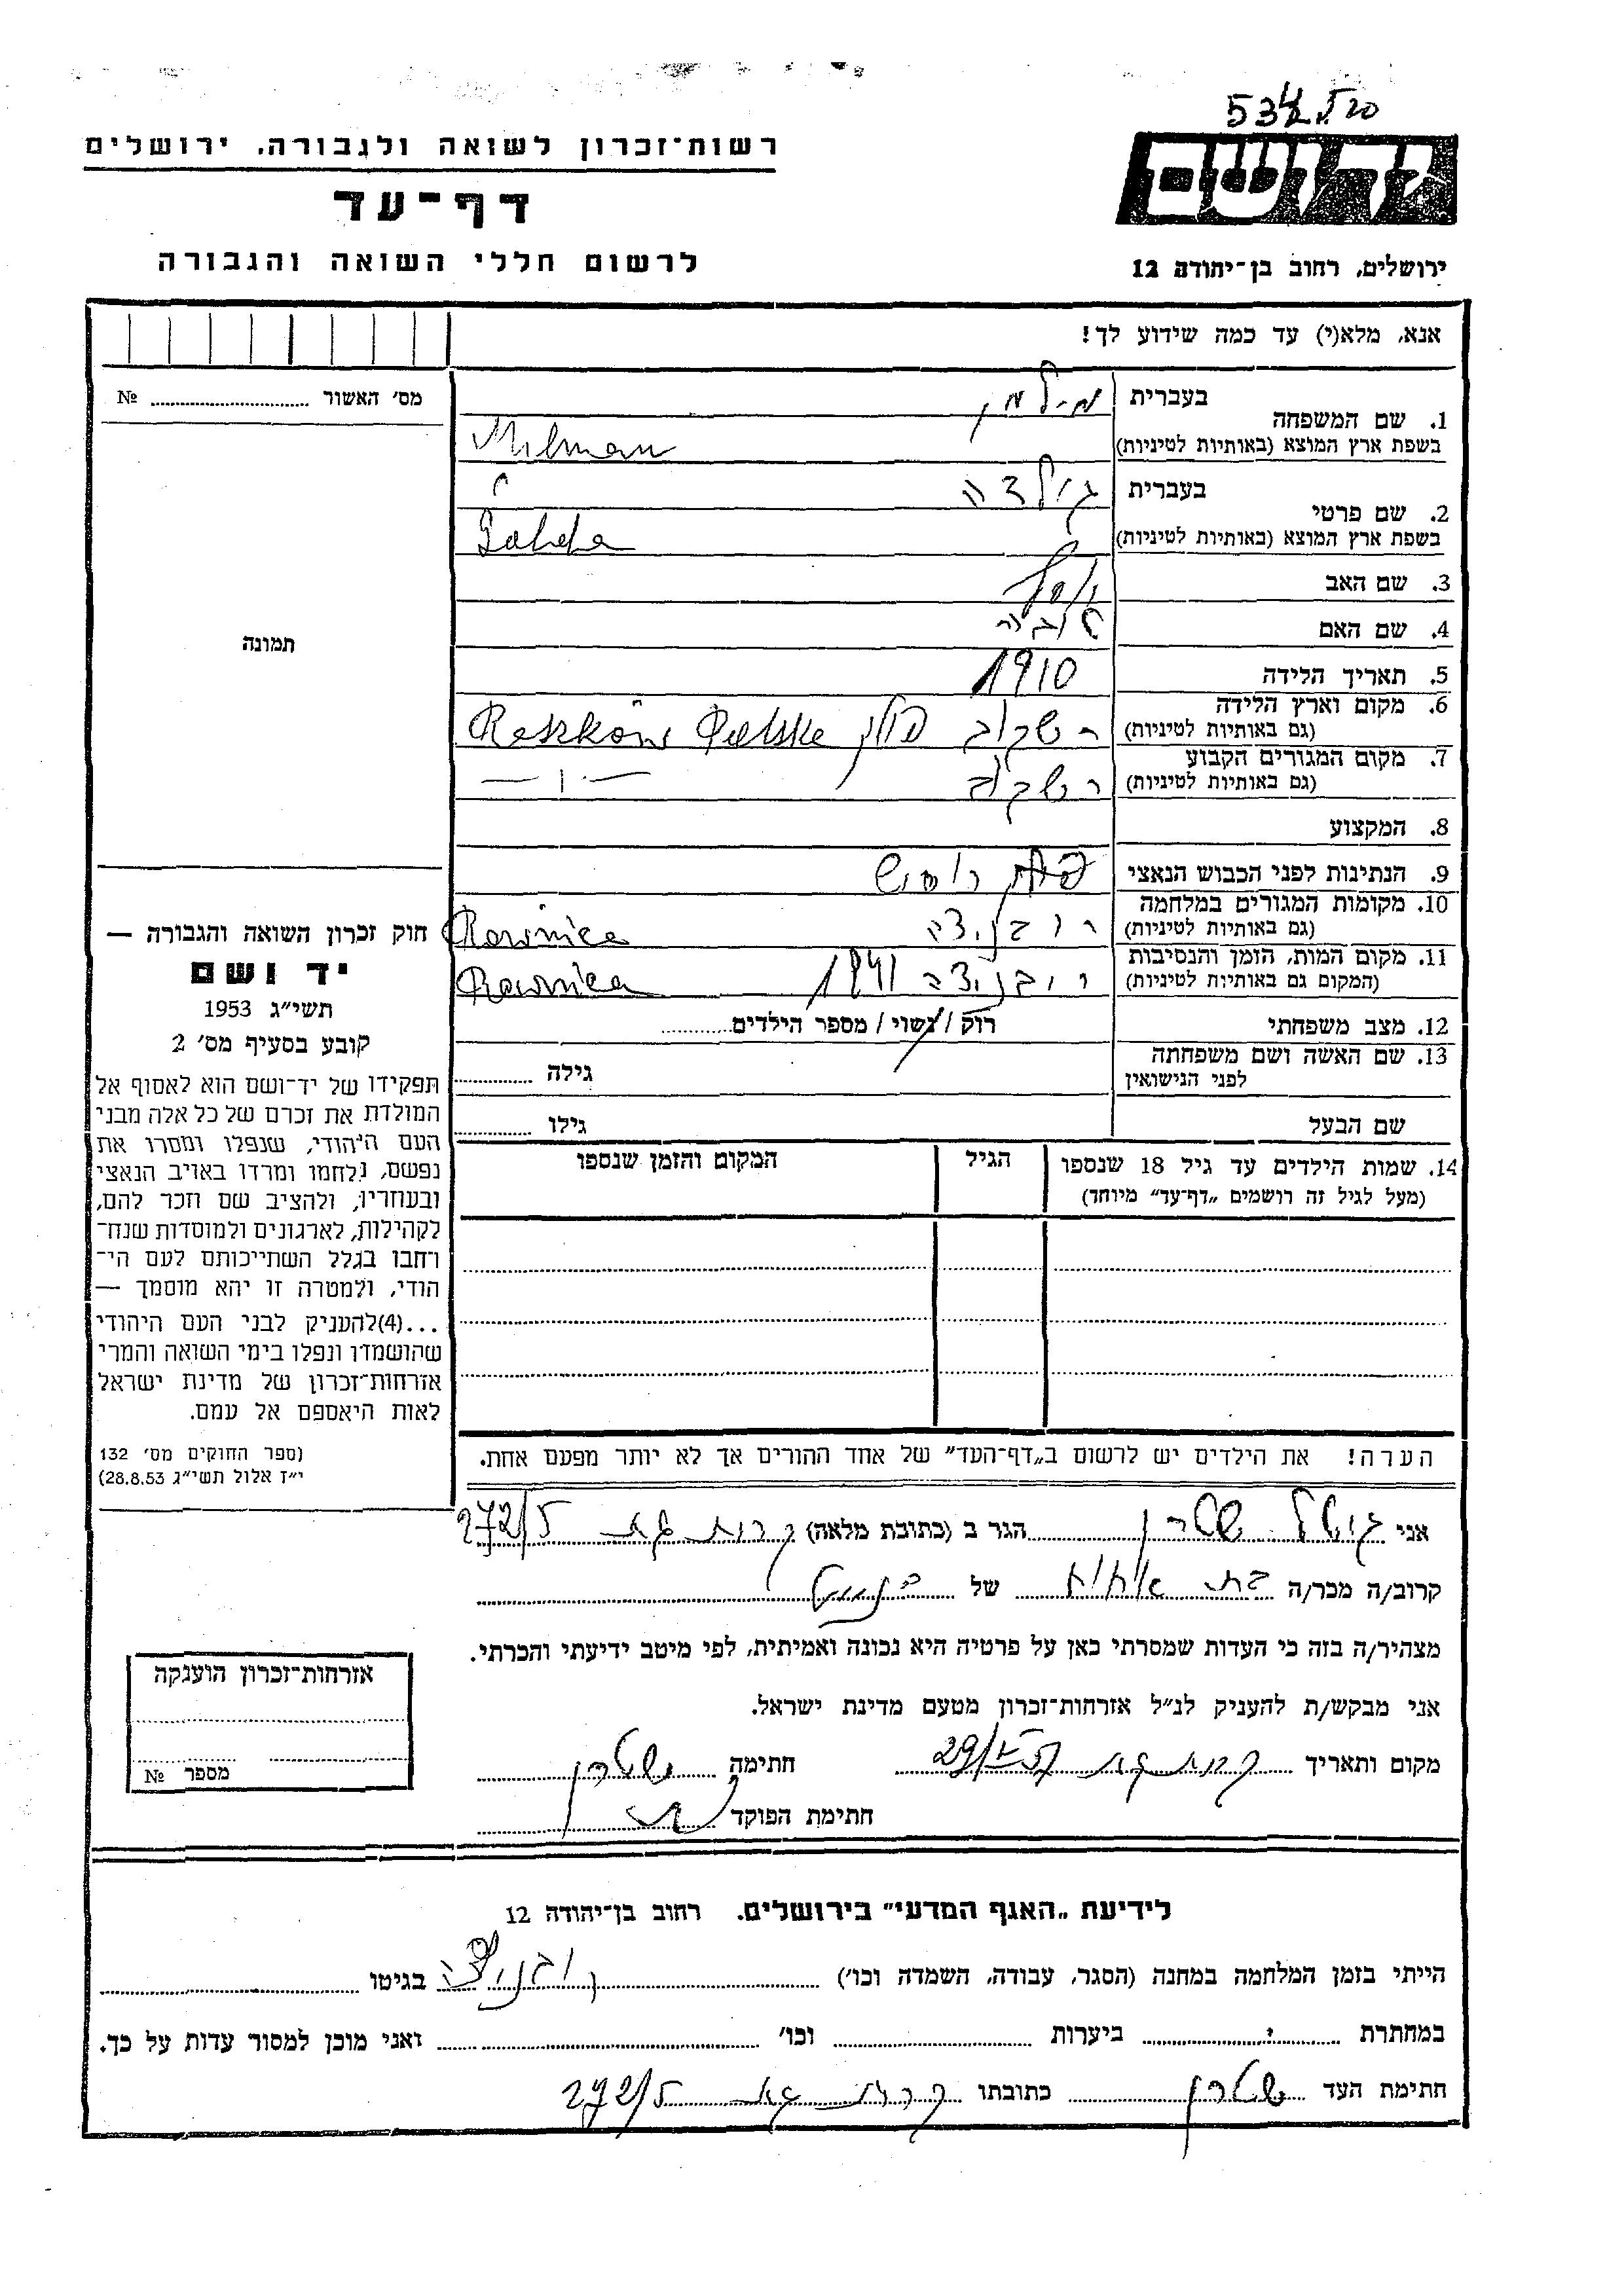 534
רשות־זכרון לשואה ולגבורה, ירושלים
דף־עד
לרשום חללי השואה והגבורה
ידושם
ירושלים, רחוב בן־יהודה 12
אנא, מלא(י) עד כמה שידוע לך!
מס' האשור № 
תמונה
1. שם המשפחה בעברית מילמן
בשפת ארץ המוצא (באותיות לטיניות) Milman
2. שם פרטי בעברית גולדה
בשפת ארץ המוצא (באותיות לטיניות) Golda
3. שם האב
4. שם האם טובה
5. תאריך הלידה 1910
6. מקום וארץ הלידה (גם באותיות לטיניות) רשקוב פולין Raszków Polska
7. מקום המגורים הקבוע (גם באותיות לטיניות) רשקוב — ׀ —
8. המקצוע
9. הנתינות לפני הכבוש הנאצי
10. מקומות המגורים במלחמה (גם באותיות לטיניות) רובניצה Rawnica
11. מקום המות, הזמן והנסיבות (המקום גם באותיות לטיניות) רובניצה 1941 Rawnica
12. מצב משפחתי רוק / נשוי / מספר הילדים
13. שם האשה ושם משפחתה לפני הנישואין גילה
שם הבעל גילו
14. שמות הילדים עד גיל 18 שנספו הגיל המקום והזמן שנספו
(מעל לגיל זה רושמים „דף־עד" מיוחד)
חוק זכרון השואה והגבורה —
יד ושם
תשי״ג 1953
קובע בסעיף מס' 2
תפקידו של יד־ושם הוא לאסוף אל
המולדת את זכרם של כל אלה מבני
העם היהודי, שנפלו ומסרו את
נפשם, נלחמו ומרדו באויב הנאצי
ובעוזריו, ולהציב שם וזכר להם,
לקהילות, לארגונים ולמוסדות שנח־
רחבו בגלל השתייכותם לעם הי־
הודי, ולמטרה זו יהא מוסמך —
...(4)להעניק לבני העם היהודי
שהושמדו ונפלו בימי השואה והמרי
אזרחות־זכרון של מדינת ישראל
לאות היאספם אל עמם.
(ספר החוקים מס' 132
י״ז אלול תשי״ג 28.8.53)
הערה! את הילדים יש לרשום ב„דף־העד" של אחד ההורים אך לא יותר מפעם אחת.
אני שטרן הגר ב (כתובת מלאה) קרית גת 272/5
קרוב/ה מכר/ה של
מצהיר/ה בזה כי העדות שמסרתי כאן על פרטיה היא נכונה ואמיתית, לפי מיטב ידיעתי והכרתי.
אני מבקש/ת להעניק לנ״ל אזרחות־זכרון מטעם מדינת ישראל.
מקום ותאריך קרית גת חתימה שטרן
חתימת הפוקד
אזרחות־זכרון הוענקה
מספר №
לידיעת „האגף המדעי" בירושלים. רחוב בן־יהודה 12
הייתי בזמן המלחמה במחנה (הסגר, עבודה, השמדה וכו') רובניצה בגיטו
במחתרת ביערות וכו' ואני מוכן למסור עדות על כך.
חתימת העד שטרן כתובתו קרית גת 272/5